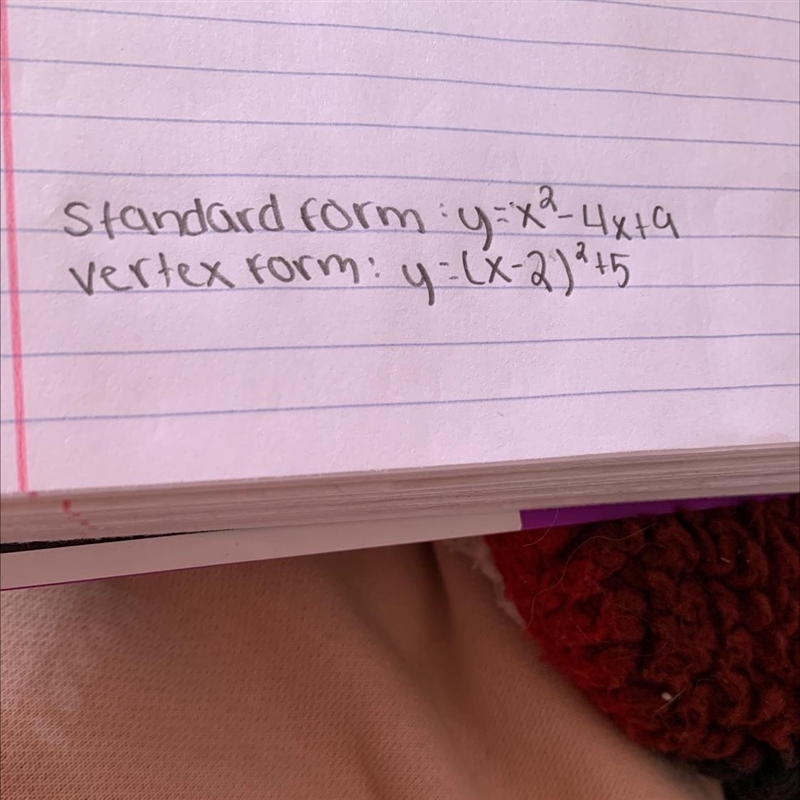 Standard form: y=x²-4x+9
vertex form: y=(x-2)²+5